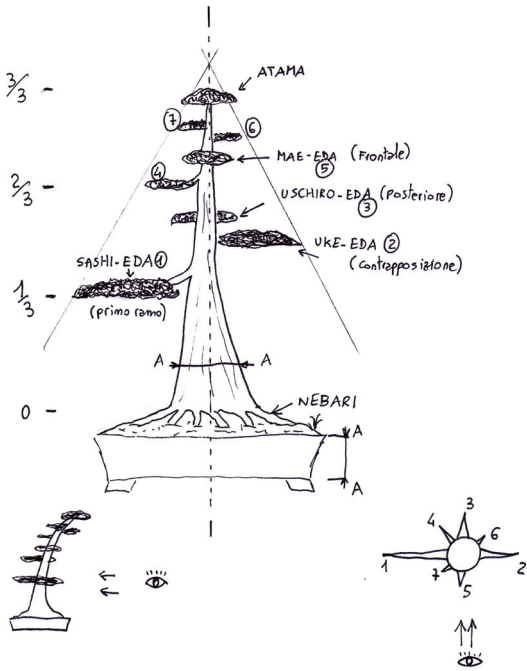 3/3
ATAMA
7
6
MAE-EDA (Frontale)
5
2/3
4
USCHIRO-EDA (posteriore)
3
UKE-EDA 2
(contrapposizione)
SASHI-EDA 1
(primo ramo)
1/3
A A
NEBARI
0
A
A
3
4 6
1 2
7
5